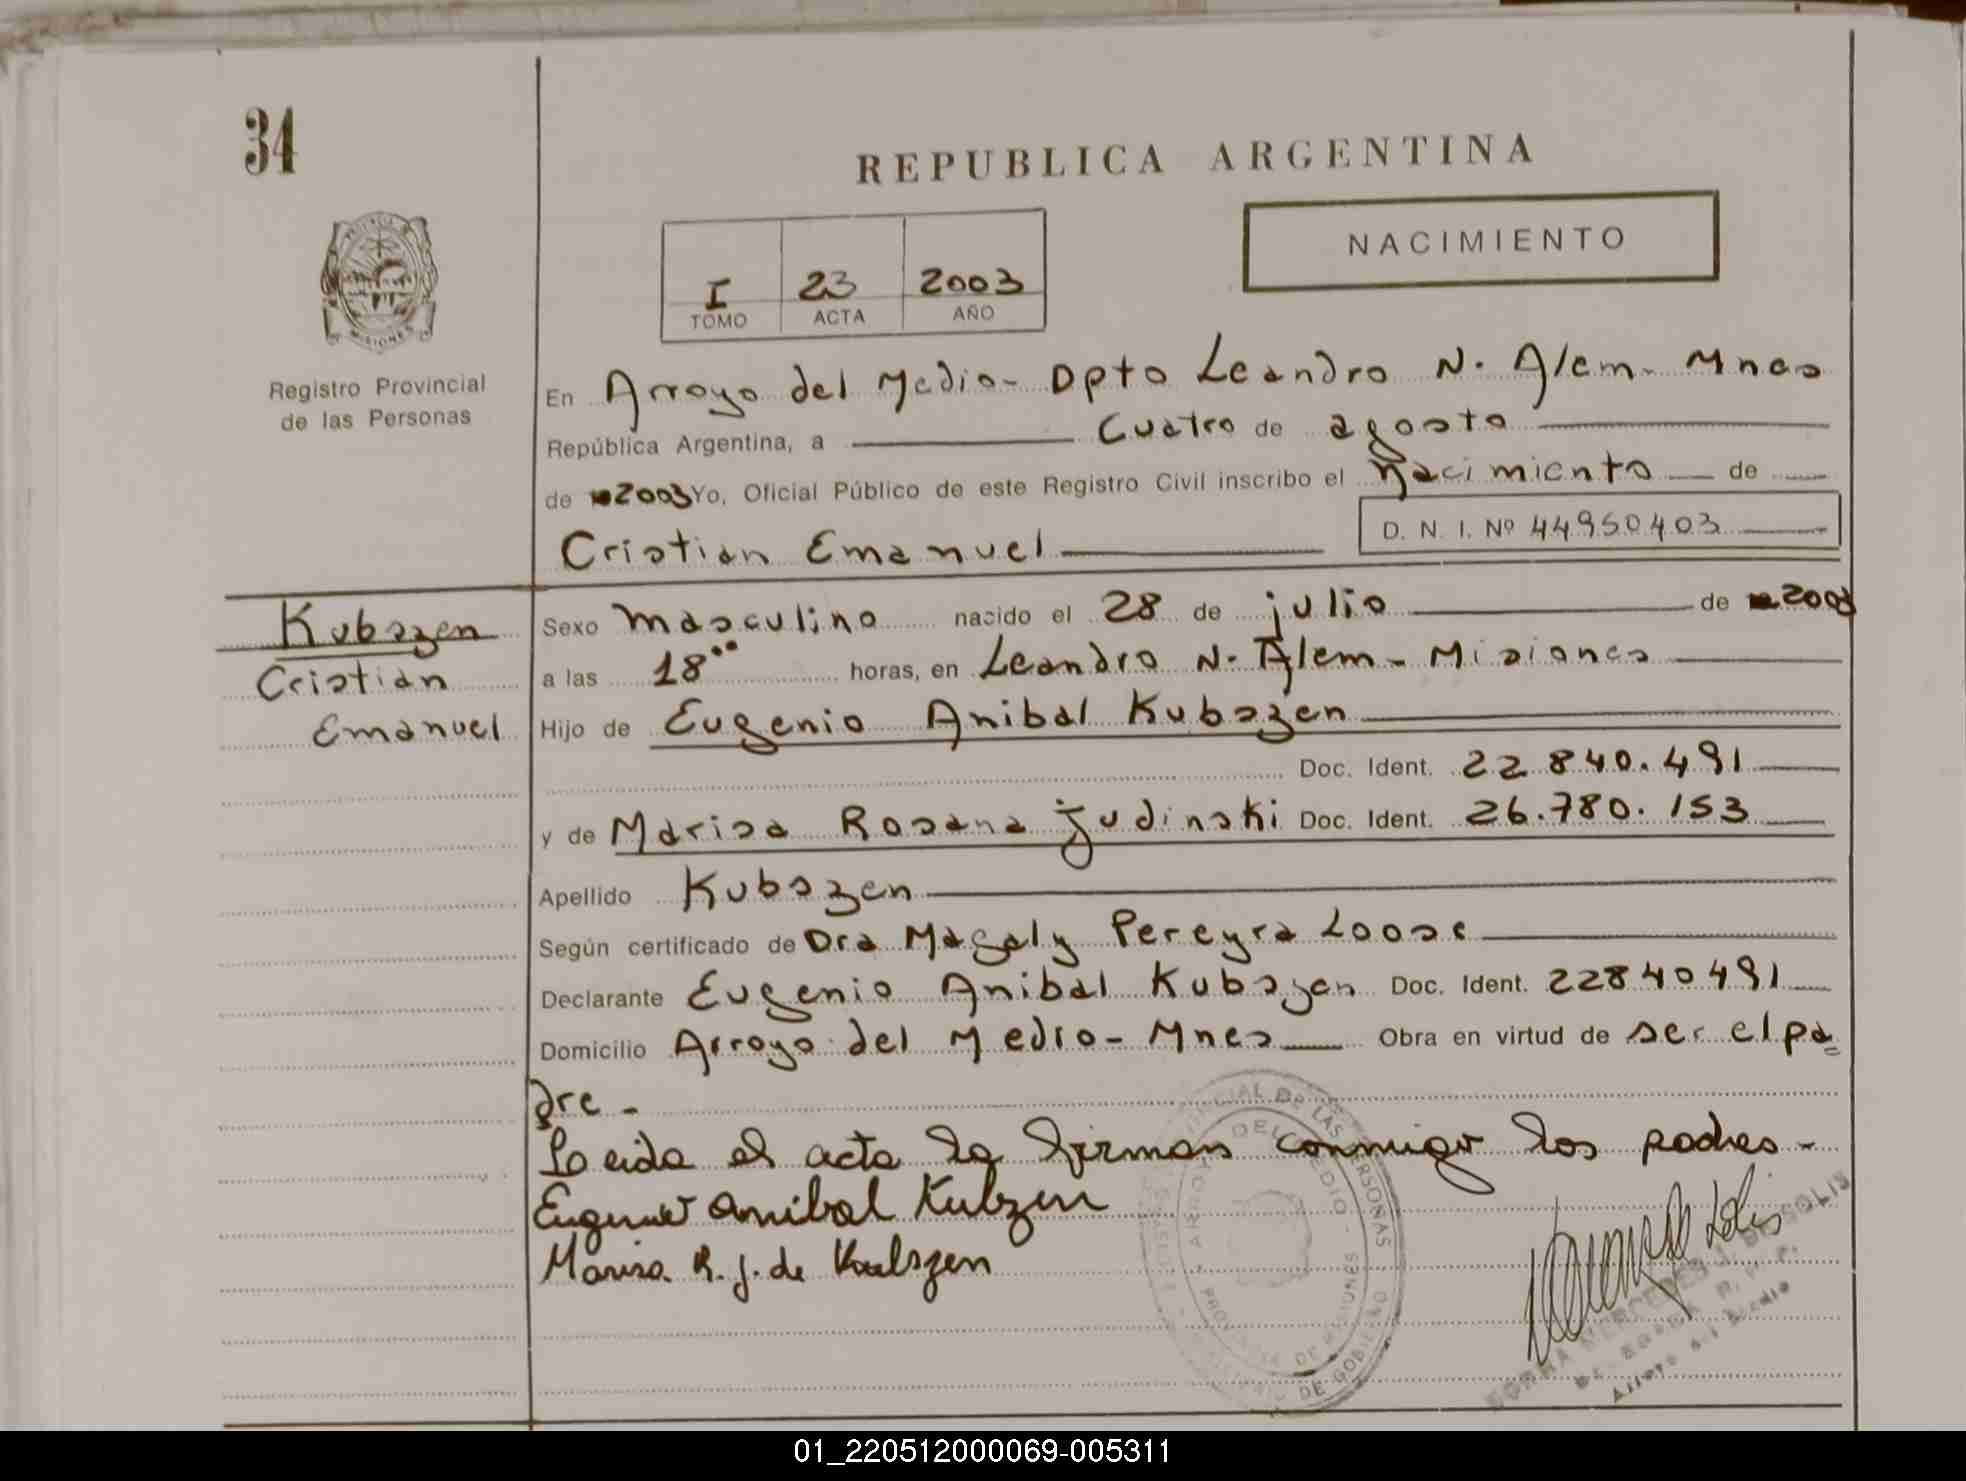 34
REPUBLICA ARGENTINA
NACIMIENTO
I 23 2003
TOMO ACTA AÑO
PROVINCIA MISIONES
Registro Provincial
de las Personas
En Arroyo del Medio- Dpto Leandro N. Alem- Mnes
República Argentina, a Cuatro de agosto
de 2003 Yo, Oficial Público de este Registro Civil inscribo el Nacimiento de
Cristian Emanuel D. N. I. Nº 44950403
Kubszen
Cristian
Emanuel
Sexo masculino nacido el 28 de julio de 2003
a las 18°° horas, en Leandro N. Alem- Misiones
Hijo de Eugenio Anibal Kubszen
Doc. Ident. 22.840.491
y de Marisa Rosana Judinski Doc. Ident. 26.780.153
Apellido Kubszen
Según certificado de Dra Magaly Pereyra Loose
Declarante Eugenio Anibal Kubszen Doc. Ident. 22840491
Domicilio Arroyo del Medio- Mnes Obra en virtud de ser el pa
dre -
Leida el acta la firman conmigo los padres-
Eugenio Anibal Kubzen
Marisa R. J. de Kubszen
DE LAS PERSONAS
ARROYO DEL MEDIO - PROVINCIA DE MISIONES
DE GOBIERNO
NORMA MERCEDES J. DE SOLIS
Arroyo del Medio
01_220512000069-005311